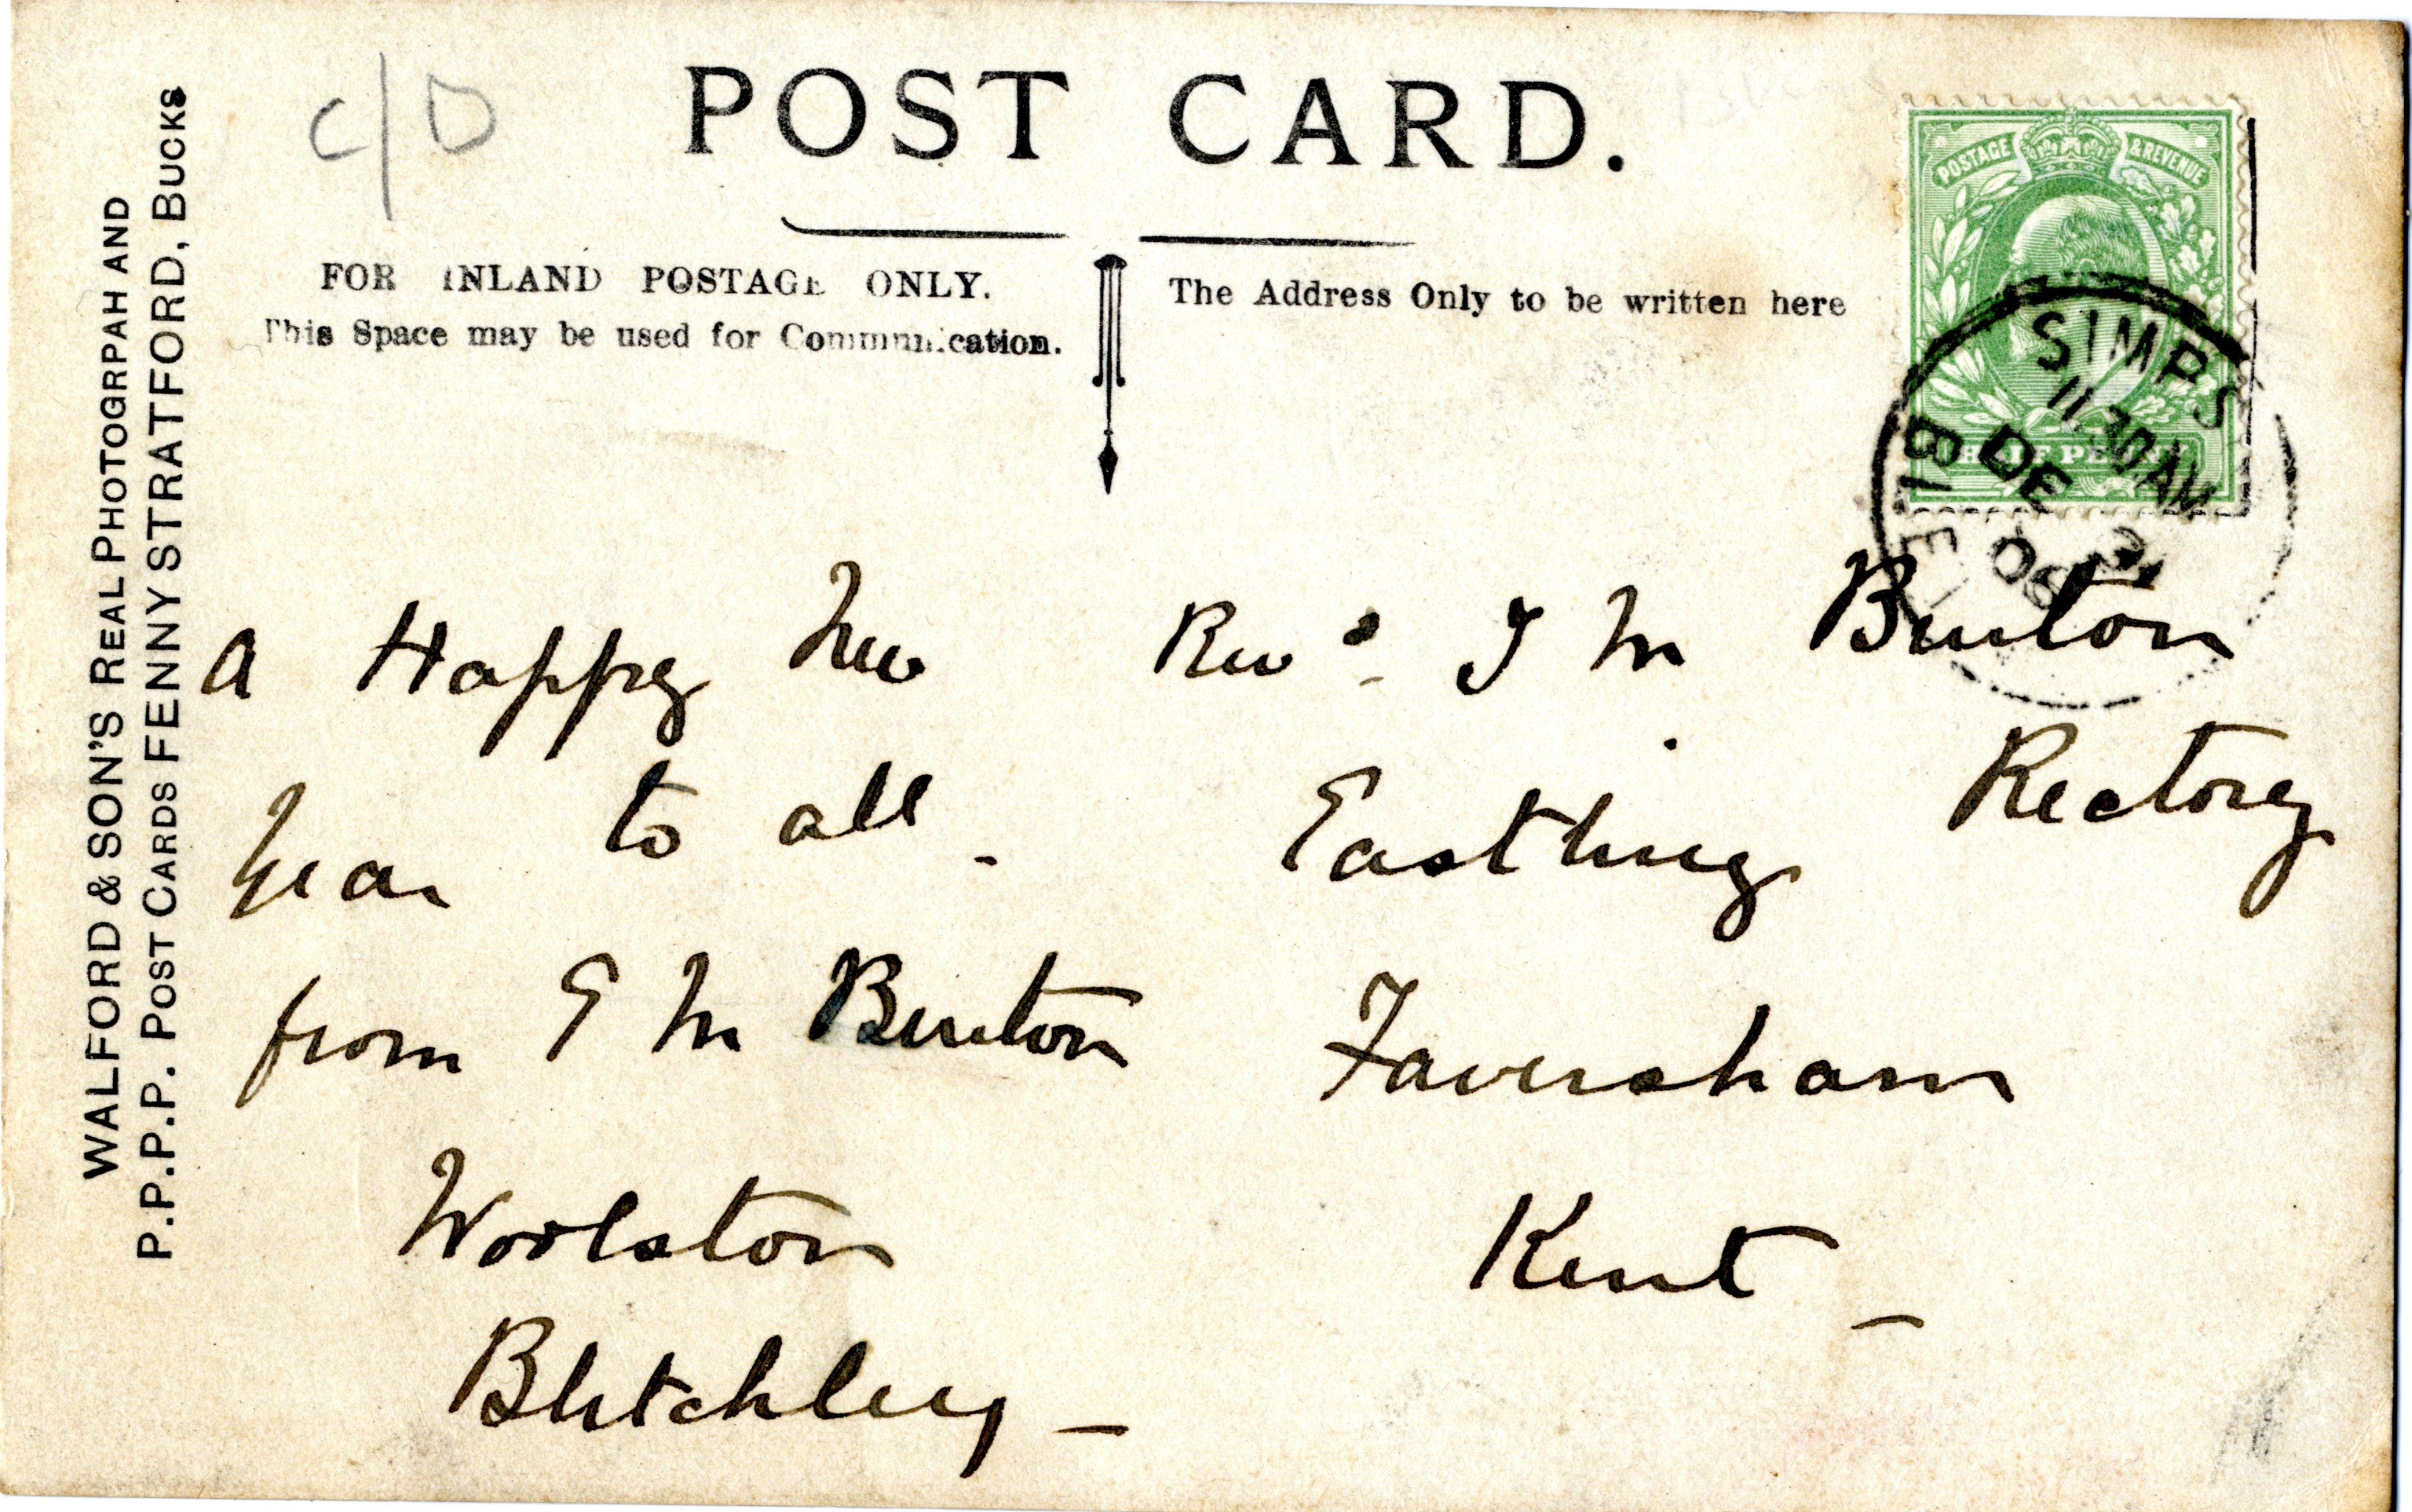 WALFORD & SON'S REAL PHOTOGRPAH AND
P.P.P.P. POST CARDS FENNY STRATFORD, BUCKS
C/D
POST CARD.
FOR INLAND POSTAGE ONLY.
This Space may be used for Communication.
The Address Only to be written here
POSTAGE & REVENUE
HALF PENNY
SIMPS
11 30 AM
DE 31
06
BLE
A Happy New
Year to all -
from E M Benton
Woolston
Bletchley -
Revd. J M Benton
Eastling Rectory
Faversham
Kent -